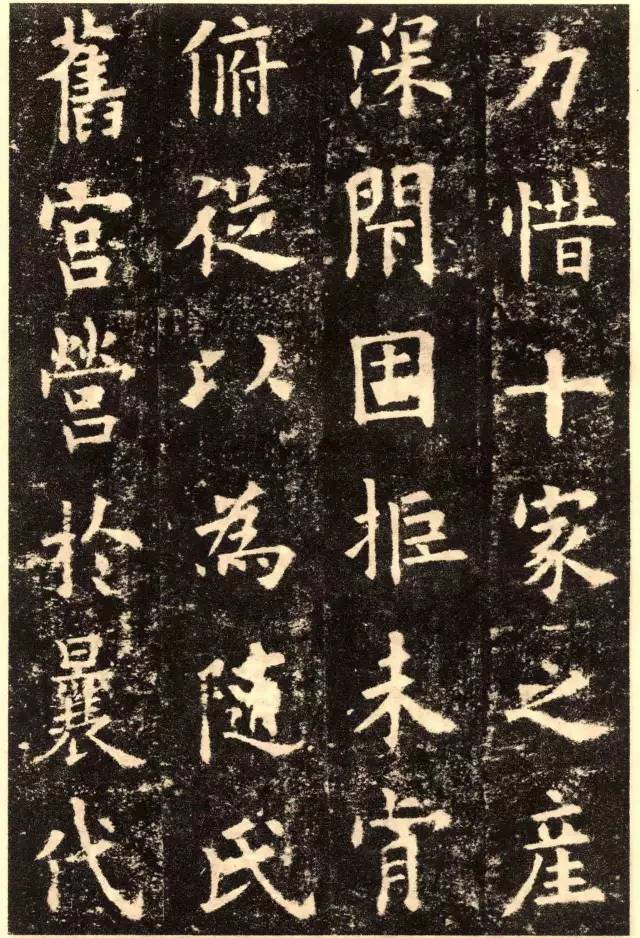 力惜十家之産
深閇固拒未肯
俯従以為随氏
舊宮營於曩代